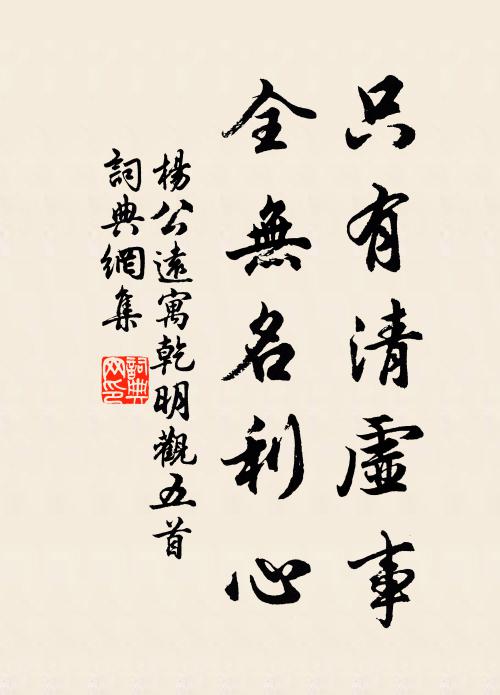 只有清虛事
全無名利心
楊公遠寓乾明觀五首
詞典網集
詞典
网印